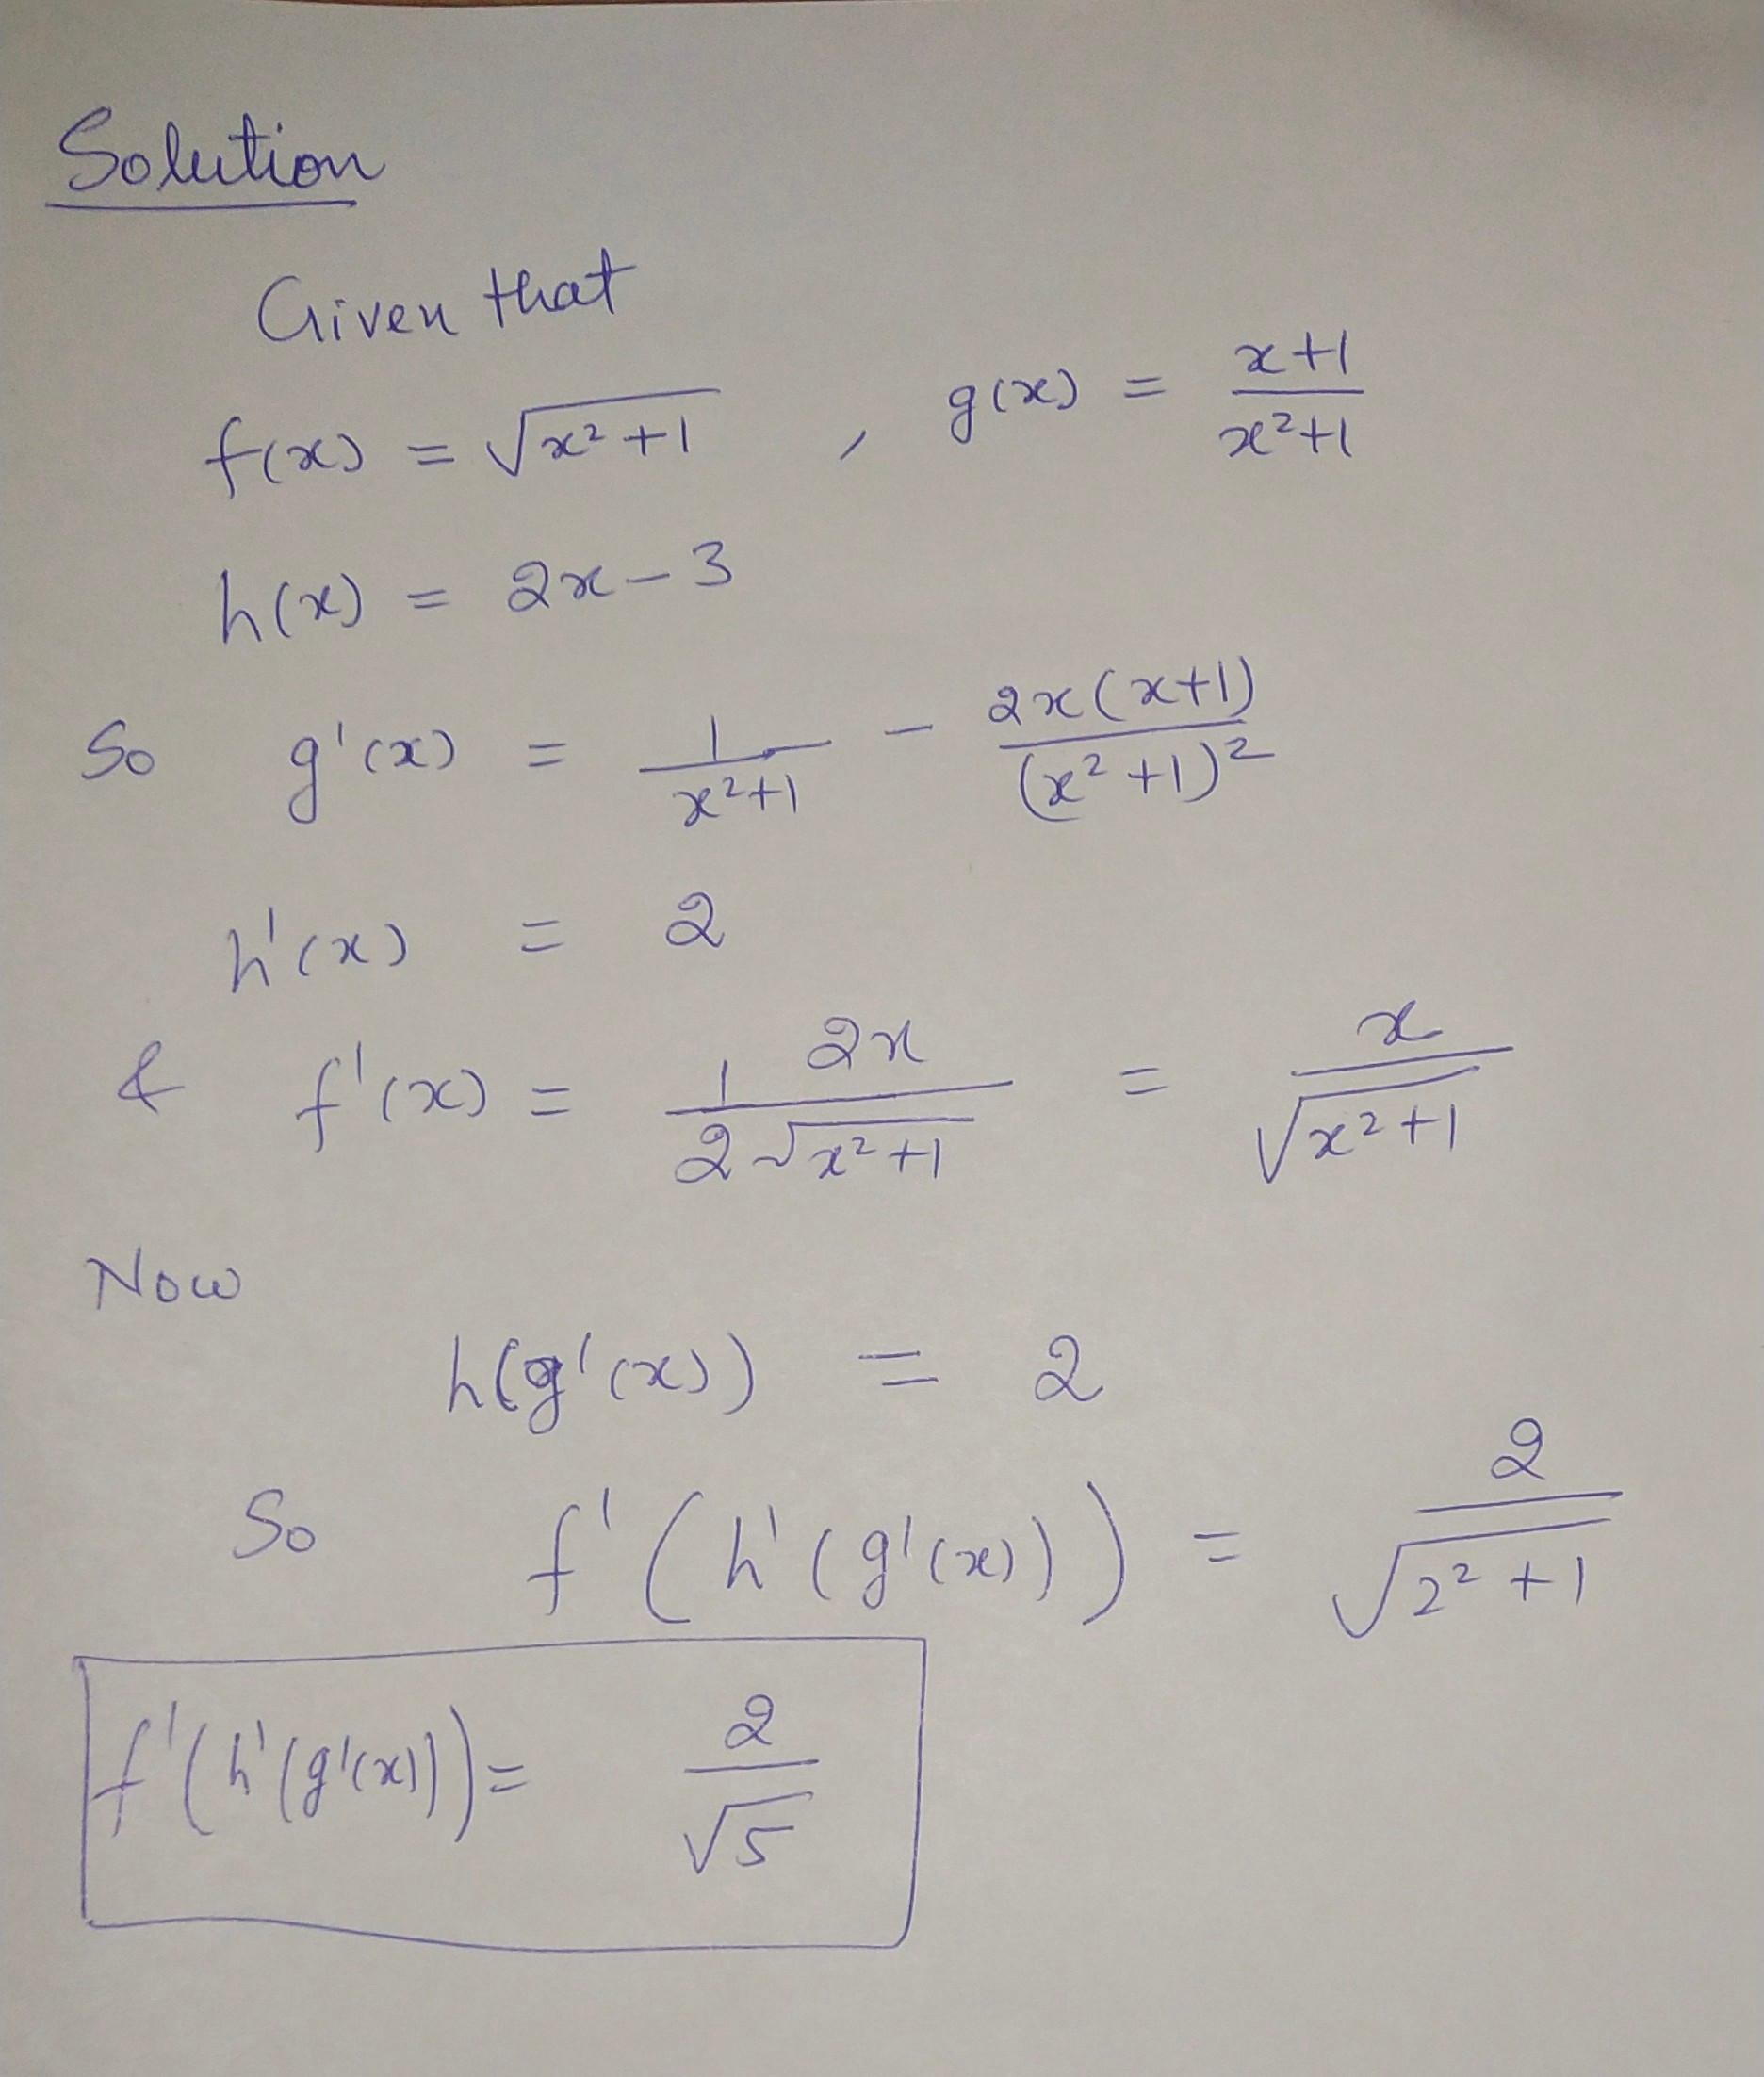 Solution
Given that
f(x) = √(x²+1) , g(x) = (x+1)/(x²+1)
h(x) = 2x-3
So g'(x) = 1/(x²+1) - 2x(x+1)/(x²+1)²
h'(x) = 2
& f'(x) = 1 2x/(2√(x²+1)) = x/√(x²+1)
Now
h(g'(x)) = 2
So f'(h'(g'(x))) = 2/√(2²+1)
f'(h'(g'(x))) = 2/√5